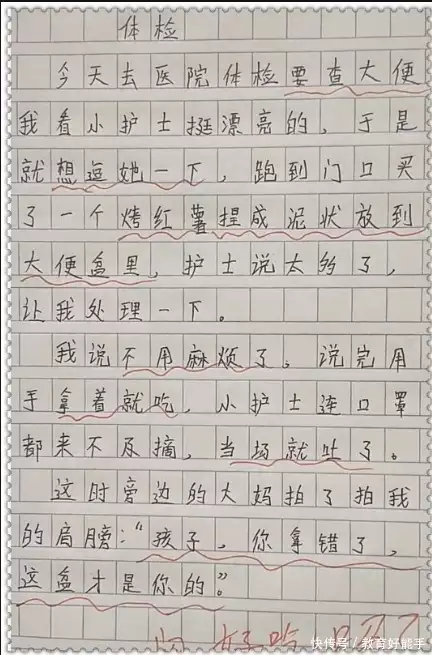 体检
今天去医院体检要查大便
我看小护士挺漂亮的，于是
就想逗她一下，跑到门口买
了一个烤红薯捏成泥状放到
大便盒里，护士说太多了，
让我处理一下。
我说不用麻烦了，说完用
手拿着就吃，小护士连口罩
都来不及摘，当场就吐了。
这时旁边的大妈拍了拍我
的肩膀：“孩子，你拿错了，
这盒才是你的。”
好吃
快传号/教育好能手